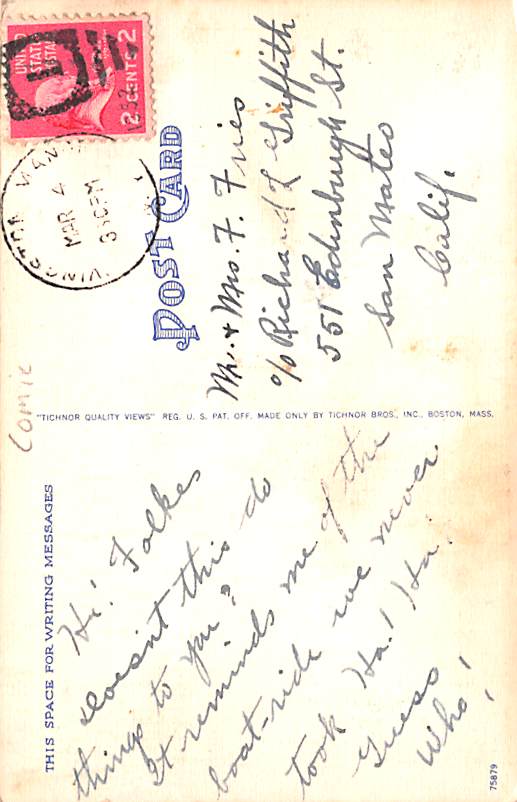 UNITED
STATES
POSTAGE
2 CENTS 2
MAR 4
PM
POST CARD
Mr. + Mrs. F. Fries
c/o Richard L Griffith
551 Edinburgh St.
San Mateo
Calif.
Comic
"TICHNOR QUALITY VIEWS" REG. U. S. PAT. OFF. MADE ONLY BY TICHNOR BROS., INC., BOSTON, MASS.
THIS SPACE FOR WRITING MESSAGES
Hi! Folkes
doesn't this do
things to you?
It reminds me of the
boat-ride we never
took Ha! Ha!
Guess
Who!
75879